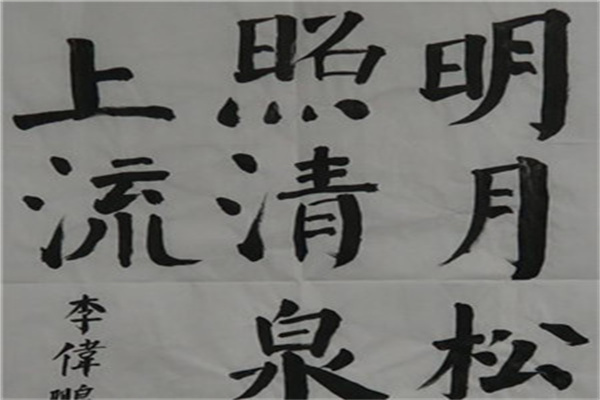 明月松
照清泉
上流
李偉鵬